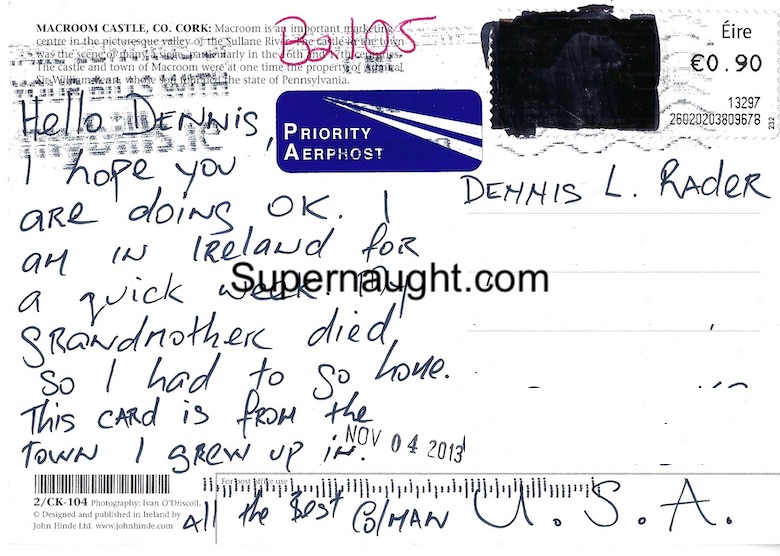 MACROOM CASTLE, CO. CORK: Macroom is an important marketing
centre in the picturesque valley of the Sullane River. The castle in the town
was the scene of many a siege, particularly in the 16th and 17th centuries.
The castle and town of Macroom were at one time the property of Admiral
Sir William Penn, whose son founded the state of Pennsylvania.
Éire
€0.90
13297
26020203809678
232
PRIORITY
AERPHOST
Hello DENNIS,
I hope you
are doing OK. I
am in Ireland for
a quick week. My
grandmother died,
so I had to go home.
This card is from the
town I grew up in.
NOV 04 2013
All the Best Colman
DENNIS L. Rader
U.S.A.
Supernaught.com
For post office use
2/CK-104 Photography: Ivan O'Driscoll.
© Designed and published in Ireland by
John Hinde Ltd. www.johnhinde.com